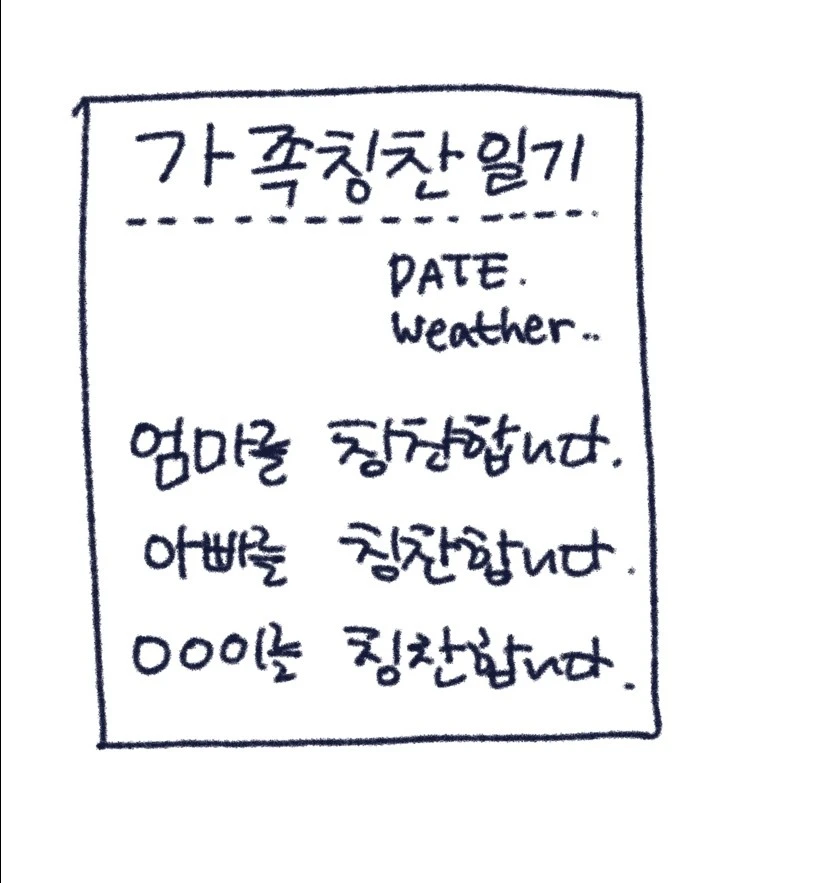 가족칭찬일기
DATE.
Weather..
엄마를 칭찬합니다.
아빠를 칭찬합니다.
OOO이를 칭찬합니다.